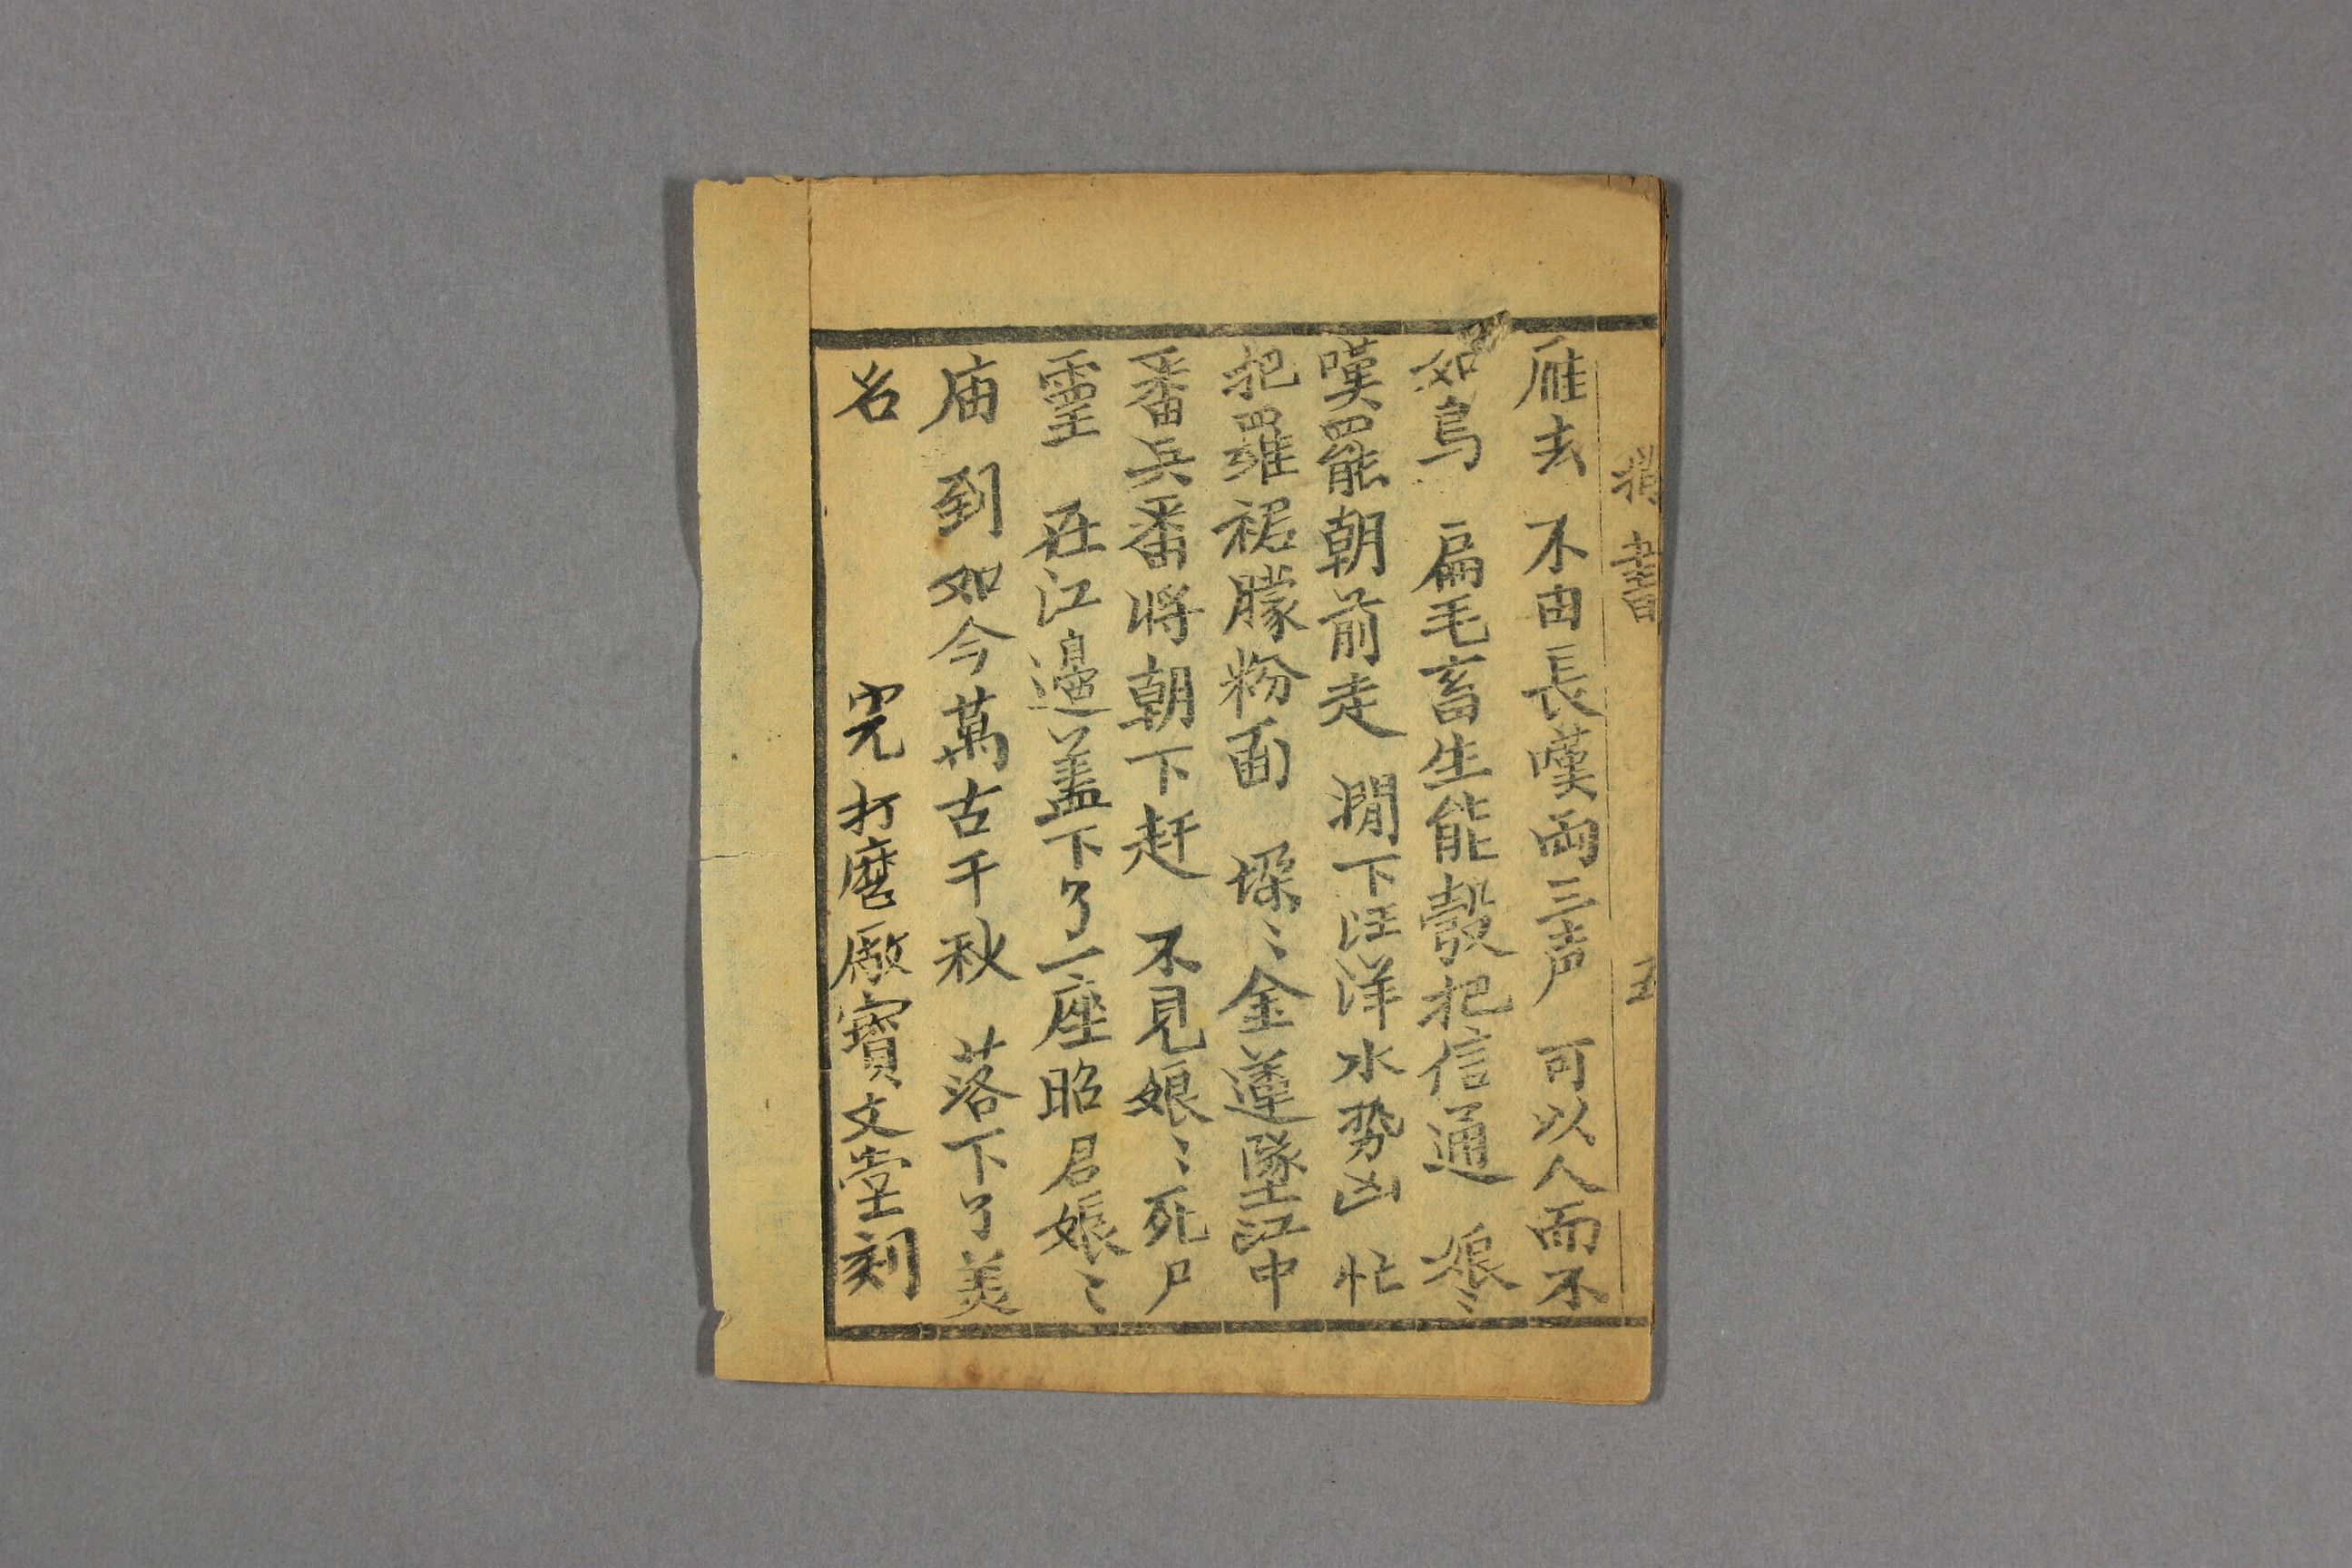 捎書 五
雁去 不由長嘆両三声 可以人而不
如鳥 扁毛畜生能彀把信通 娘〻
嘆罷朝前走 撊下汪洋水势凶 忙
把羅裙朦粉面 𨂿〻金蓮墜江中
番兵番将朝下赶 不見娘〻死尸
靈 在江邊盖下了一座昭君娘〻
庙 到如今萬古千秋 落下了美
名 完 打磨厰寳文堂刻